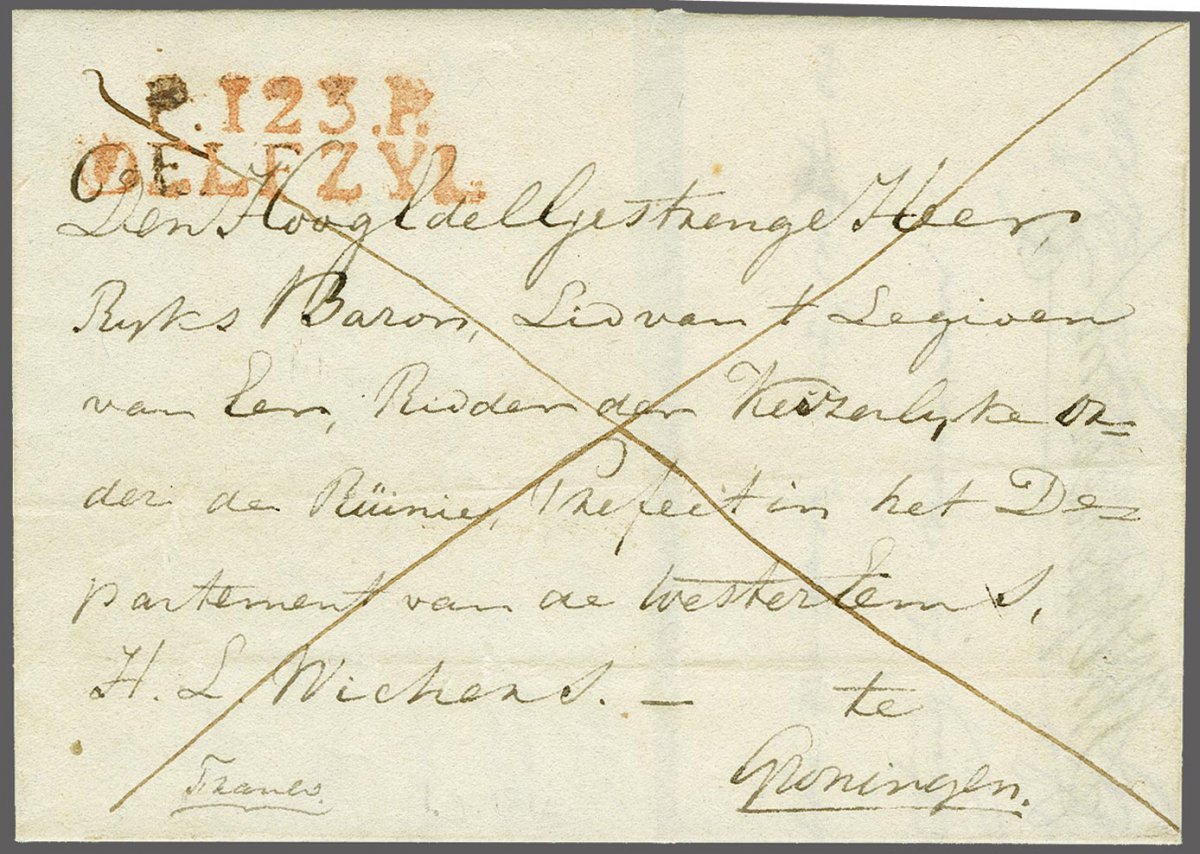 P.123.P.
DELFZYL.
Den HoogEdellgestrenge Heer,
Ryks Baron, Lid van t Legioen
van Eer, Ridder der Keizerlyke or=
der de Rüinie, Prefect in het De=
partement van de Wester Ems,
H. L. Wichers. — te
Groningen.
Franco.